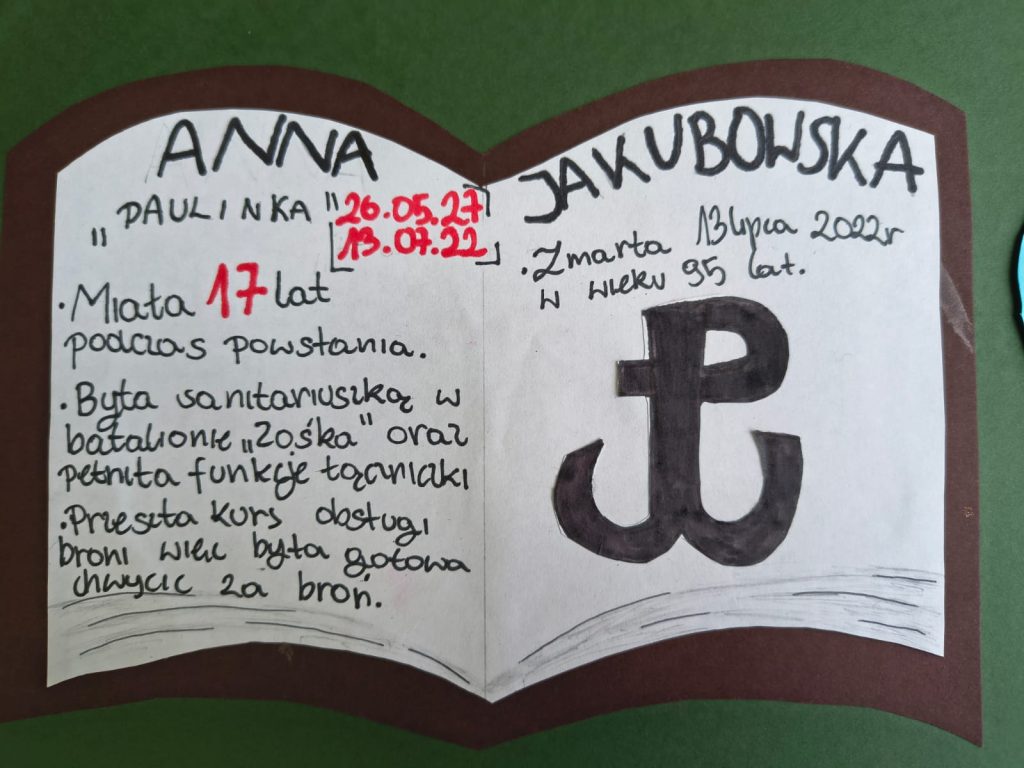 ANNA
„PAULINKA" 26.05.27
13.07.22
• Miała 17 lat
podczas powstania.
• Była sanitariuszką w
batalionie „Zośka" oraz
pełniła funkcję łączniczki
• Przeszła kurs obsługi
broni więc była gotowa
chwycić za broń.
JAKUBOWSKA
• Zmarła 13 lipca 2022r
w wieku 95 lat.